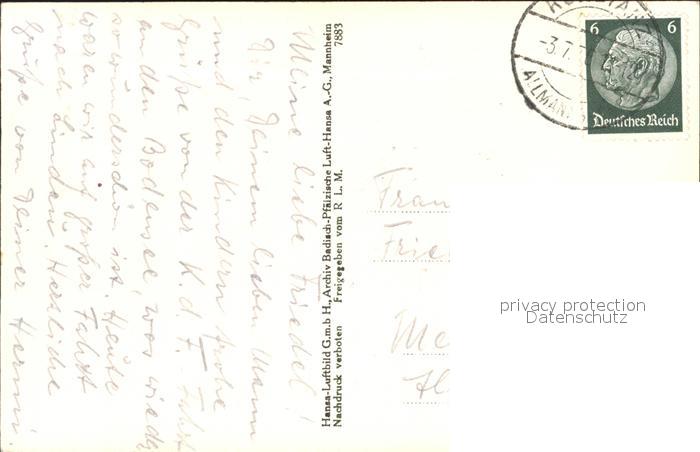 Meine liebe Friedel!
Dir, Deinem lieben Mann
und den Kindern frohe
Grüße von der K.d.F.-Fahrt
an den Bodensee, was wieder
so wunderschön ist. Heute
waren wir auf großer Fahrt
nach Lindau. Herzliche
Grüße von Deiner Hermi.
Hansa-Luftbild G.m.b H., Archiv Badisch-Pfälzische Luft-Hansa A.-G., Mannheim
Nachdruck verboten Freigegeben vom R L M. 7883
6 6
Deutsches Reich
-3.7.
ALLMANN
Frau
Frie
Me
privacy protection
Datenschutz